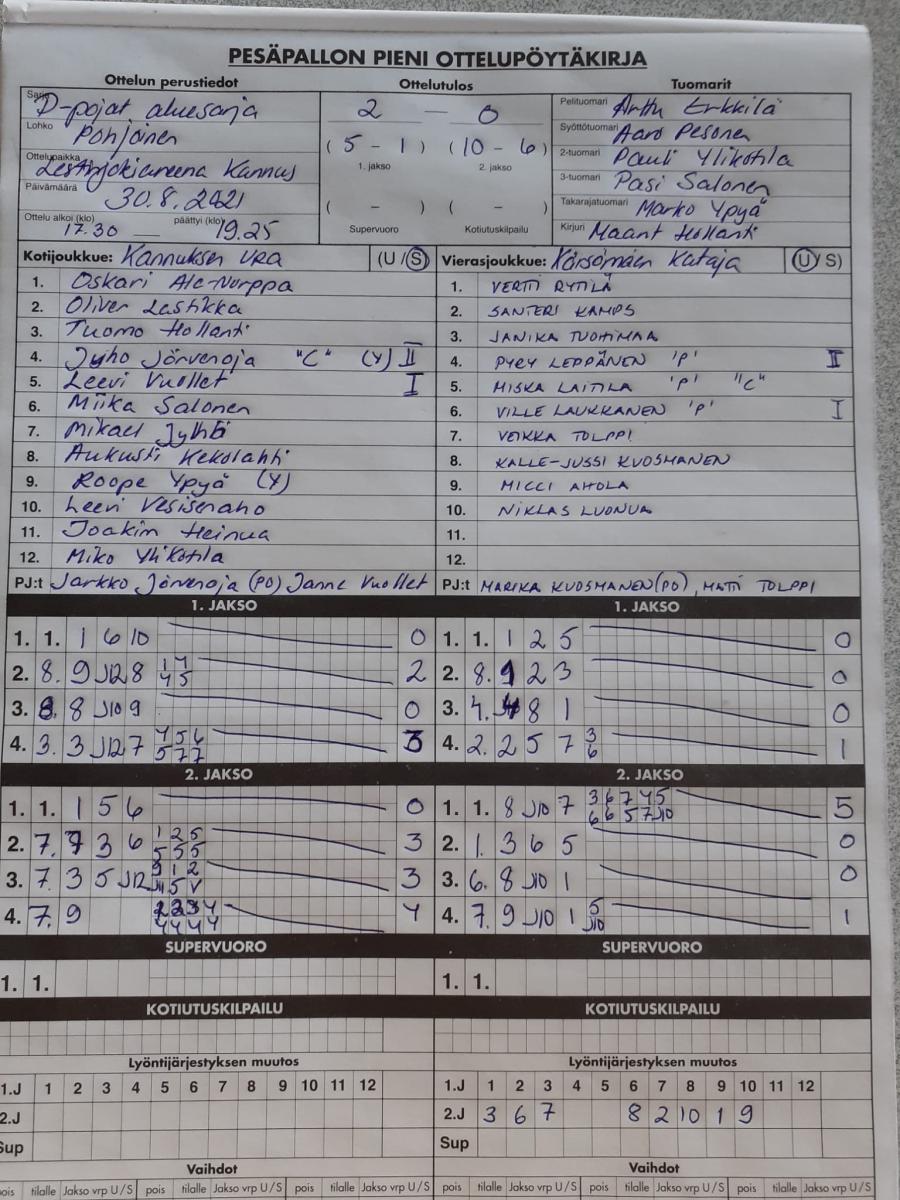 PESÄPALLON PIENI OTTELUPÖYTÄKIRJA
Ottelun perustiedot
Sarja D-pojat aluesarja
Lohko Pohjoinen
Ottelupaikka Lestinjokiareena Kannus
Päivämäärä 30.8.2021
Ottelu alkoi (klo) 17.30 päättyi (klo) 19.25
Ottelutulos
2 — 0
( 5 - 1 ) ( 10 - 6 )
1. jakso 2. jakso
( - ) ( - )
Supervuoro Kotiutuskilpailu
Tuomarit
Pelituomari Arttu Erkkilä
Syöttötuomari Aaro Pesonen
2-tuomari Pauli Ylikotila
3-tuomari Pasi Salonen
Takarajatuomari Marko Ypyä
Kirjuri Hollanti
Kotijoukkue: Kannuksen Ura (U/S)
1. Oskari Ala-Norppa
2. Oliver Lastikka
3. Tuomo Hollanti
4. Jyho Järvenoja "C" (Y) II
5. Leevi Vuollet I
6. Miika Salonen
7. Mikael Jylhä
8. Aukusti Kekolahti
9. Roope Ypyä (Y)
10. Leevi Vesisenaho
11. Joakim Heinua
12. Miko Ylikotila
PJ:t Jarkko Järvenoja (PO) Janne Vuollet
Vierasjoukkue: Kärsämäen Kataja (U/S)
1. VERTTI RYTILÄ
2. SANTERI KAMPS
3. JANIKA TUOHIMAA
4. PYRY LEPPÄNEN 'P' II
5. MISKA LAITILA 'P' "C"
6. VILLE LAUKKANEN 'P' I
7. VEIKKA TOLPPI
8. KALLE-JUSSI KUOSMANEN
9. MICCI AHOLA
10. NIKLAS LUONUA
11.
12.
PJ:t MARIKA KUOSMANEN (PO), MATTI TOLPPI
1. JAKSO
1. 1. 1 6 10 0
2. 8. 9 J12 8 1 4 2
4 5
3. 8. 8 J10 9 0
4. 3. 3 J12 7 4 5 6 3
5 7 7
1. JAKSO
1. 1. 1 2 5 0
2. 8. 9 2 3 0
3. 4. 8 1 0
4. 2. 2 5 7 3 1
6
2. JAKSO
1. 1. 1 5 6 0
2. 7. 7 3 6 1 2 5 3
5 5 5
3. 7. 3 5 J12 9 1 2 3
J11 5 V
4. 7. 9 2 2 3 4 4
4 4 4 4
2. JAKSO
1. 1. 8 J10 7 3 6 7 4 5 5
6 6 5 7 J10
2. 1. 3 6 5 0
3. 6. 8 J10 1 0
4. 7. 9 J10 1 5 1
J10
SUPERVUORO
1. 1.
SUPERVUORO
1. 1.
KOTIUTUSKILPAILU
KOTIUTUSKILPAILU
Lyöntijärjestyksen muutos
1.J 1 2 3 4 5 6 7 8 9 10 11 12
2.J
Sup
Lyöntijärjestyksen muutos
1.J 1 2 3 4 5 6 7 8 9 10 11 12
2.J 3 6 7 8 2 10 1 9
Sup
Vaihdot
pois tilalle Jakso vrp U/S pois tilalle Jakso vrp U/S pois tilalle Jakso vrp U/S
Vaihdot
pois tilalle Jakso vrp U/S pois tilalle Jakso vrp U/S pois tilalle Jakso vrp U/S